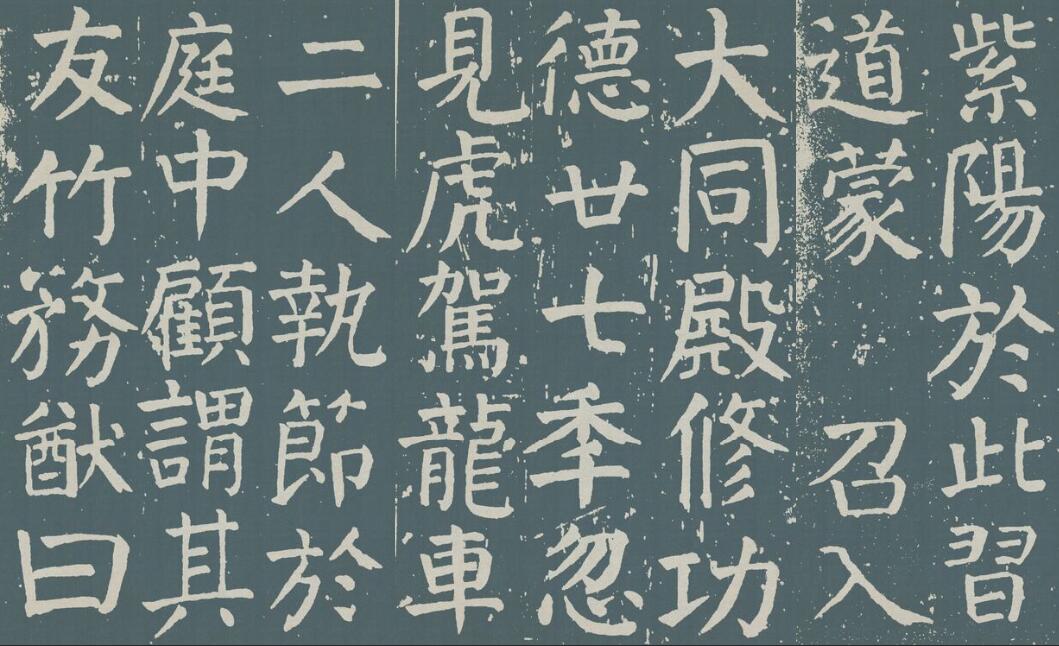 紫陽於此習
道蒙召入
大同殿修功
德廿七季忽
見虎駕龍車
二人執節於
庭中顧謂其
友竹務猷曰